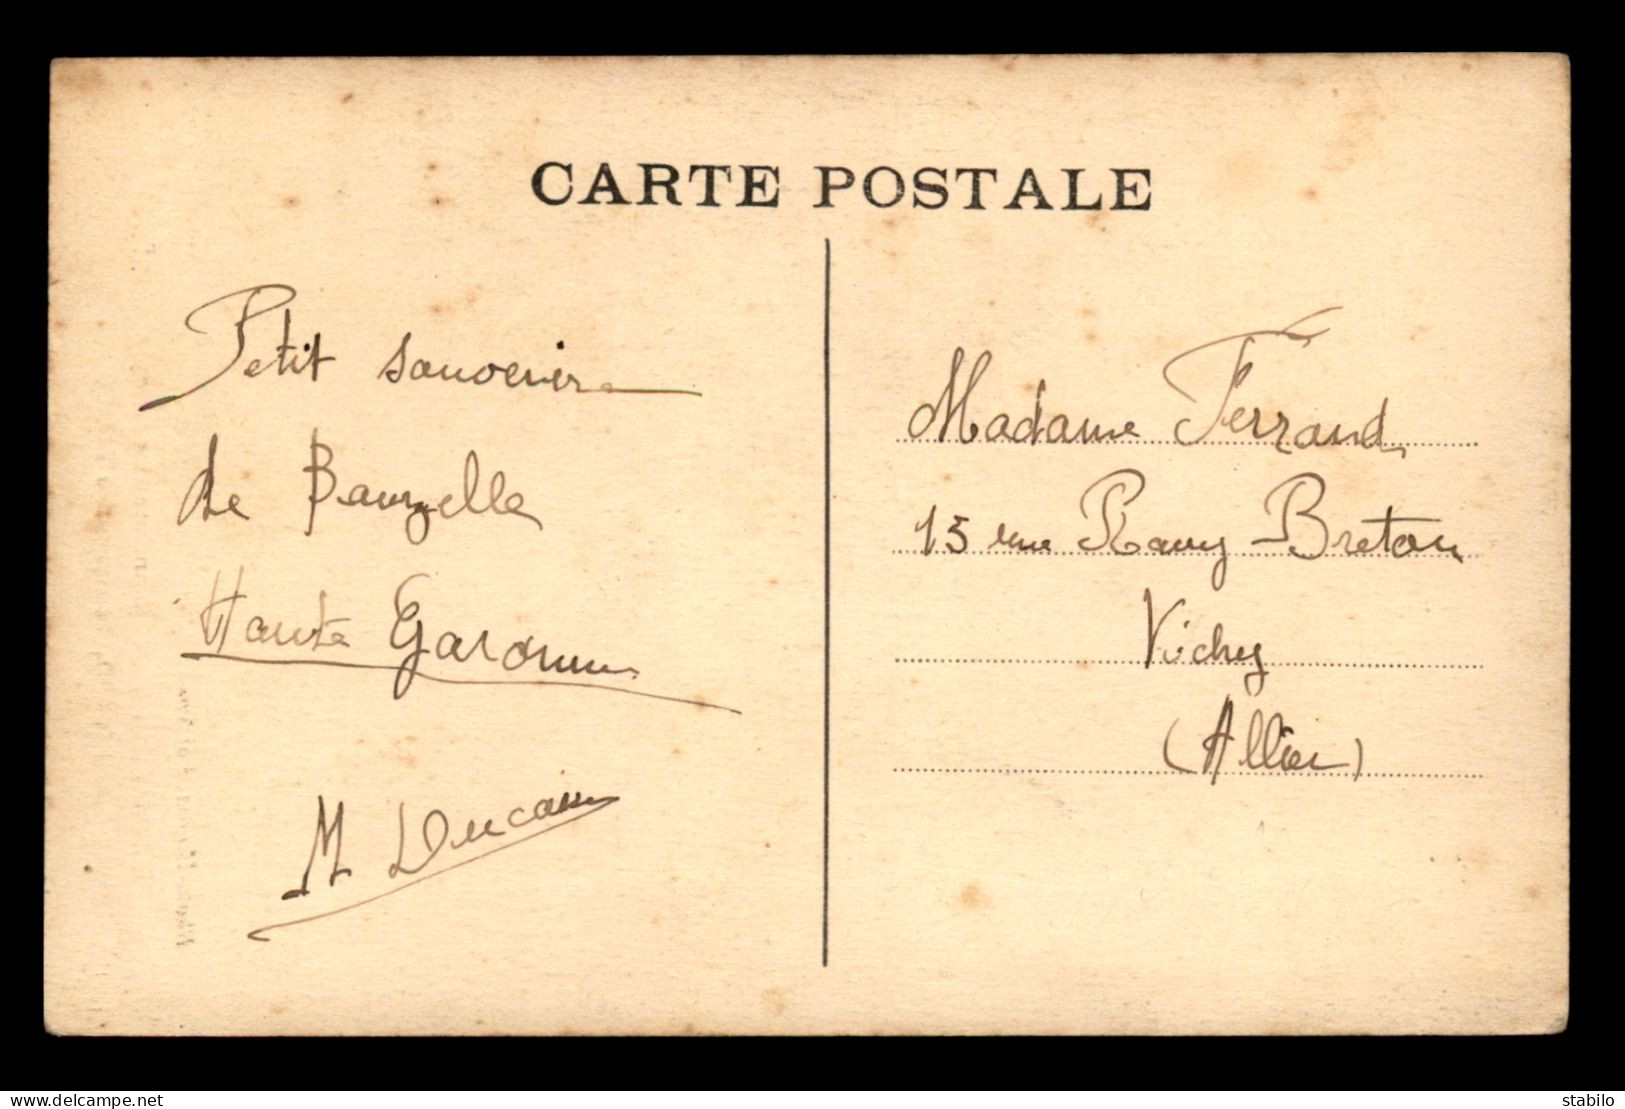 CARTE POSTALE
Petit souvenir
de Bauzelle
Haute Garonne
M Ducasse
Madame Ferrand
15 rue Ramy-Breton
Vichy
(Allier)
stabilo